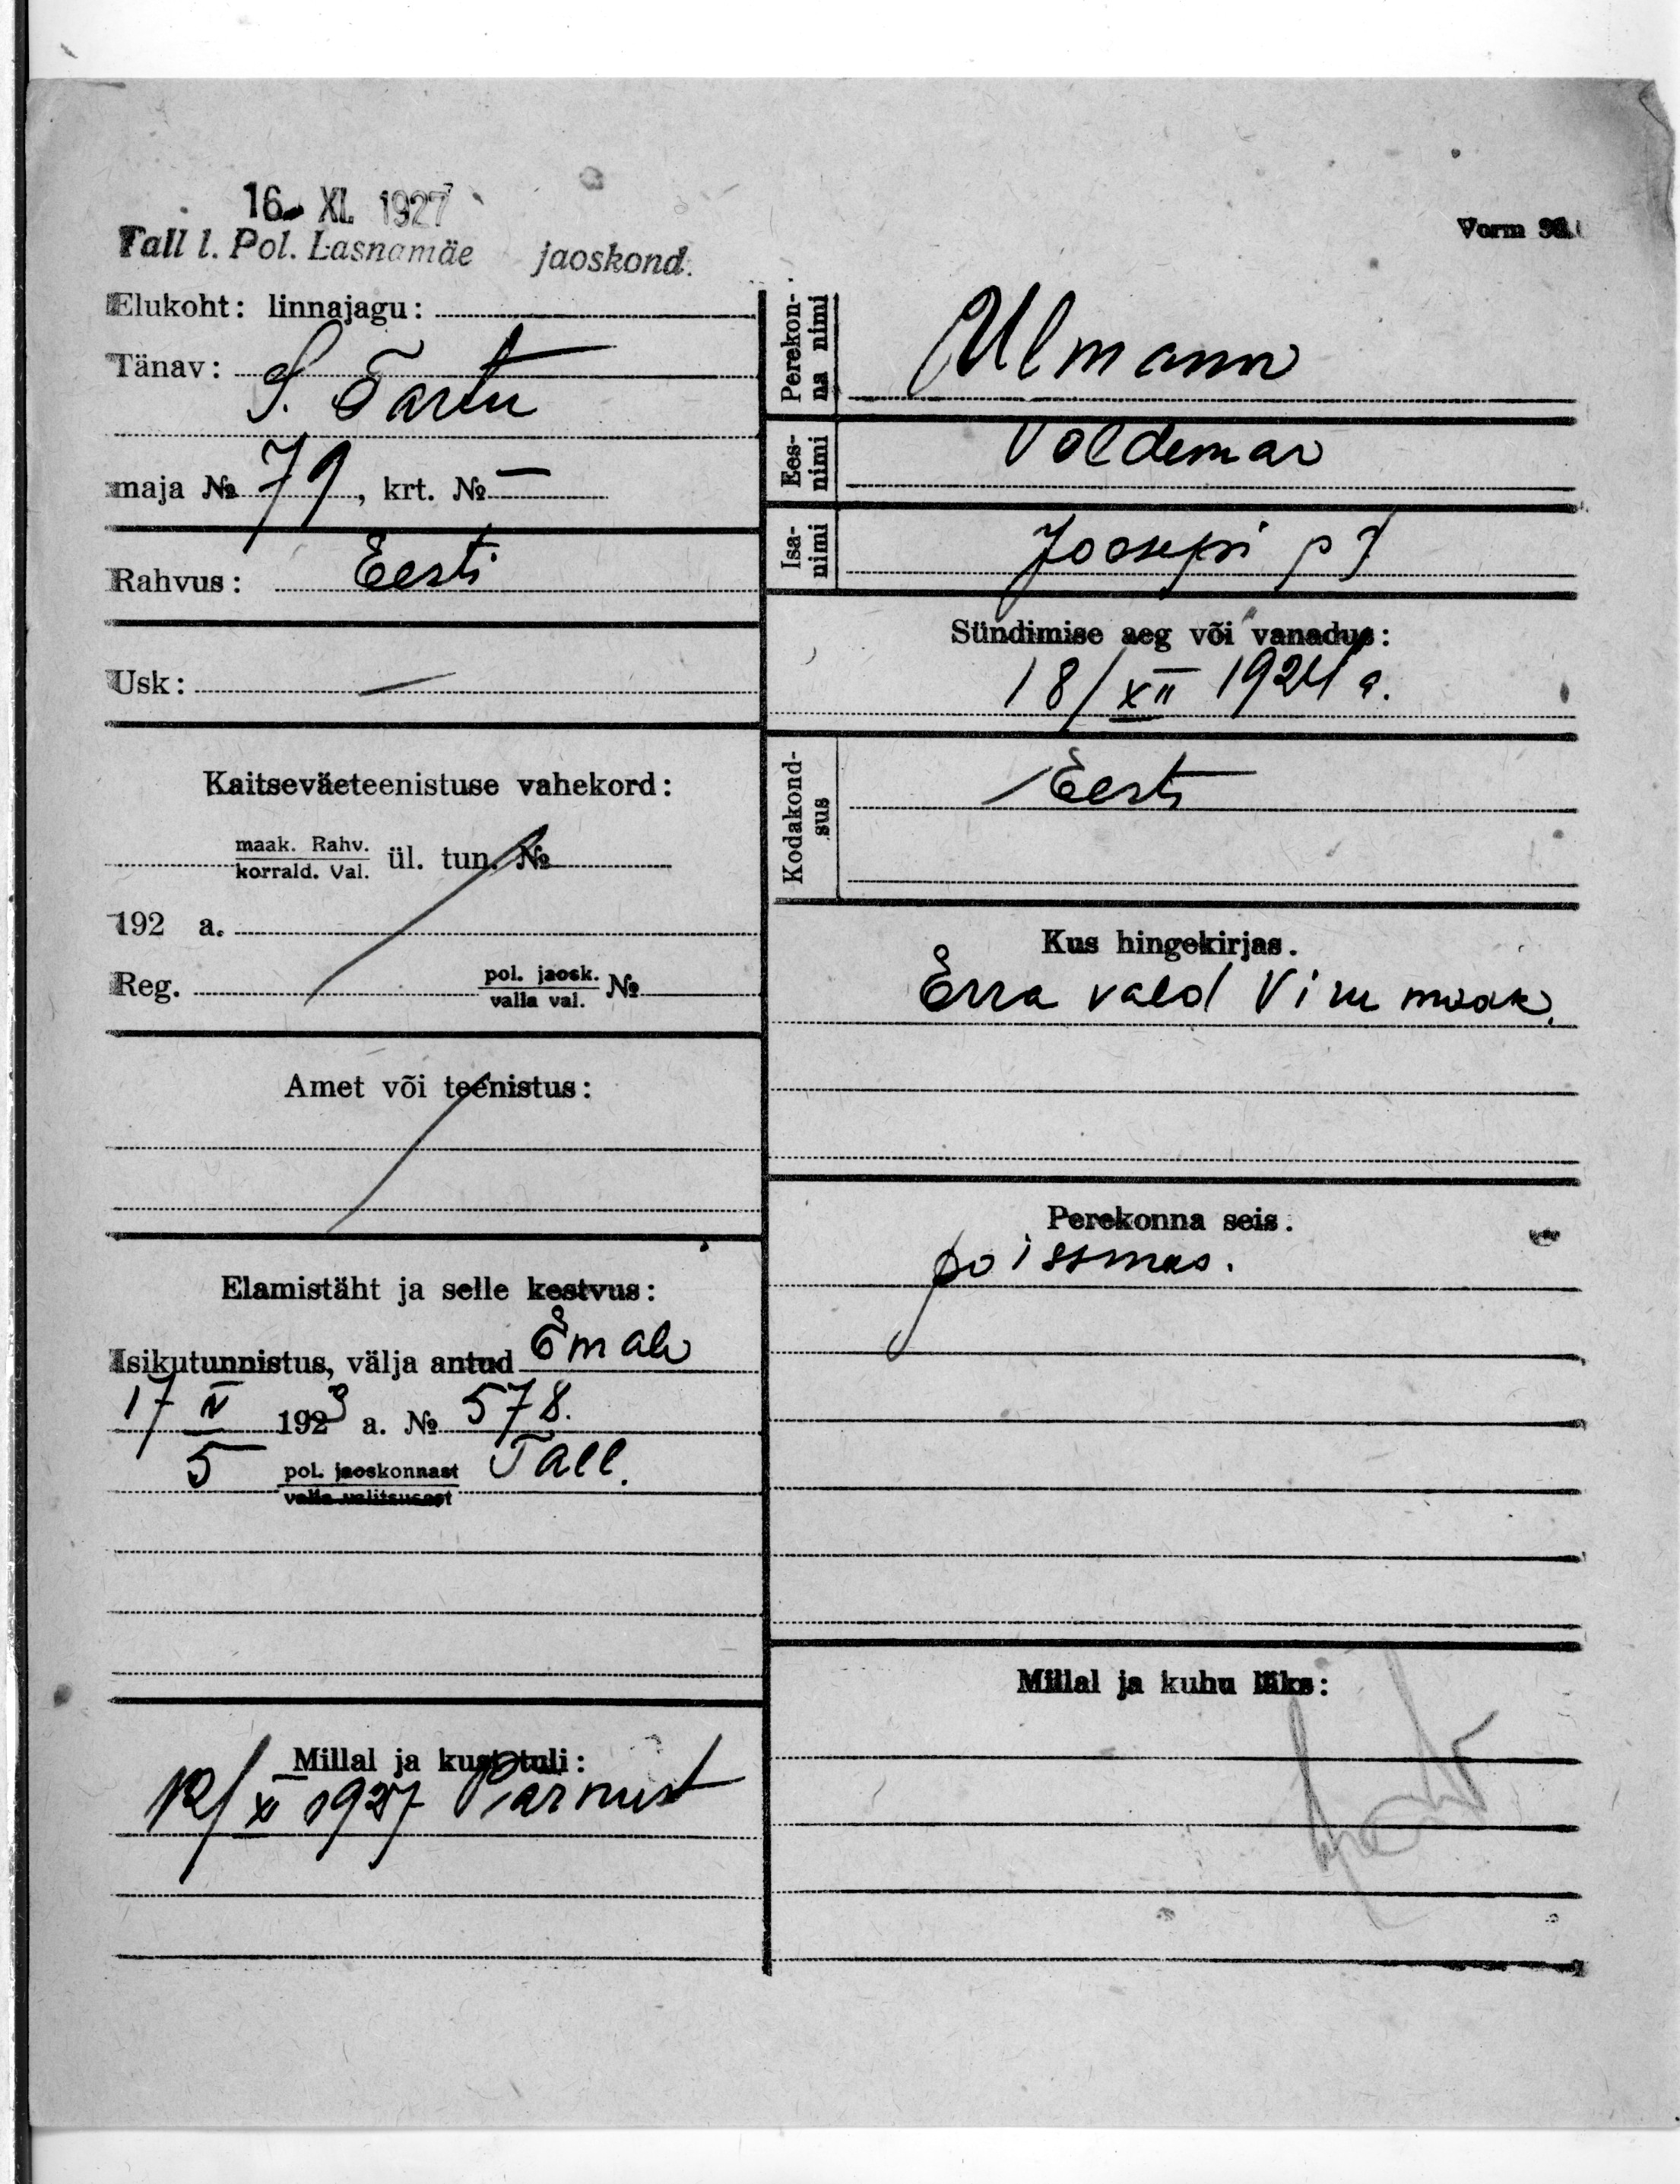 16. XI. 1927
Tall l. Pol. Lasnamäe jaoskond.
Vorm
Elukoht: linnajagu:
Tänav: S. Tartu
maja № 79, krt. № —
Rahvus: Eesti
Usk: —
Kaitseväeteenistuse vahekord:
maak. Rahv.
korrald. Val. ül. tun. №
192 a.
Reg. pol. jaosk. №
valla val.
Amet või teenistus:
Elamistäht ja selle kestvus:
Isikutunnistus, välja antud Emale
17 IV 1923 a. № 578.
5 pol. jaoskonnast Tall.
valla valitsusest
Millal ja kust tuli:
12/XI 1927 Pärnust
Perekon-
na nimi
Ulmann
Ees-
nimi
Voldemar
Isa-
nimi
Joosepi p
Sündimise aeg või vanadus:
18/XII 1924 a.
Kodakond-
sus
Eesti
Kus hingekirjas.
Erra vald Viru maak.
Perekonna seis.
poissmees.
Millal ja kuhu läks: